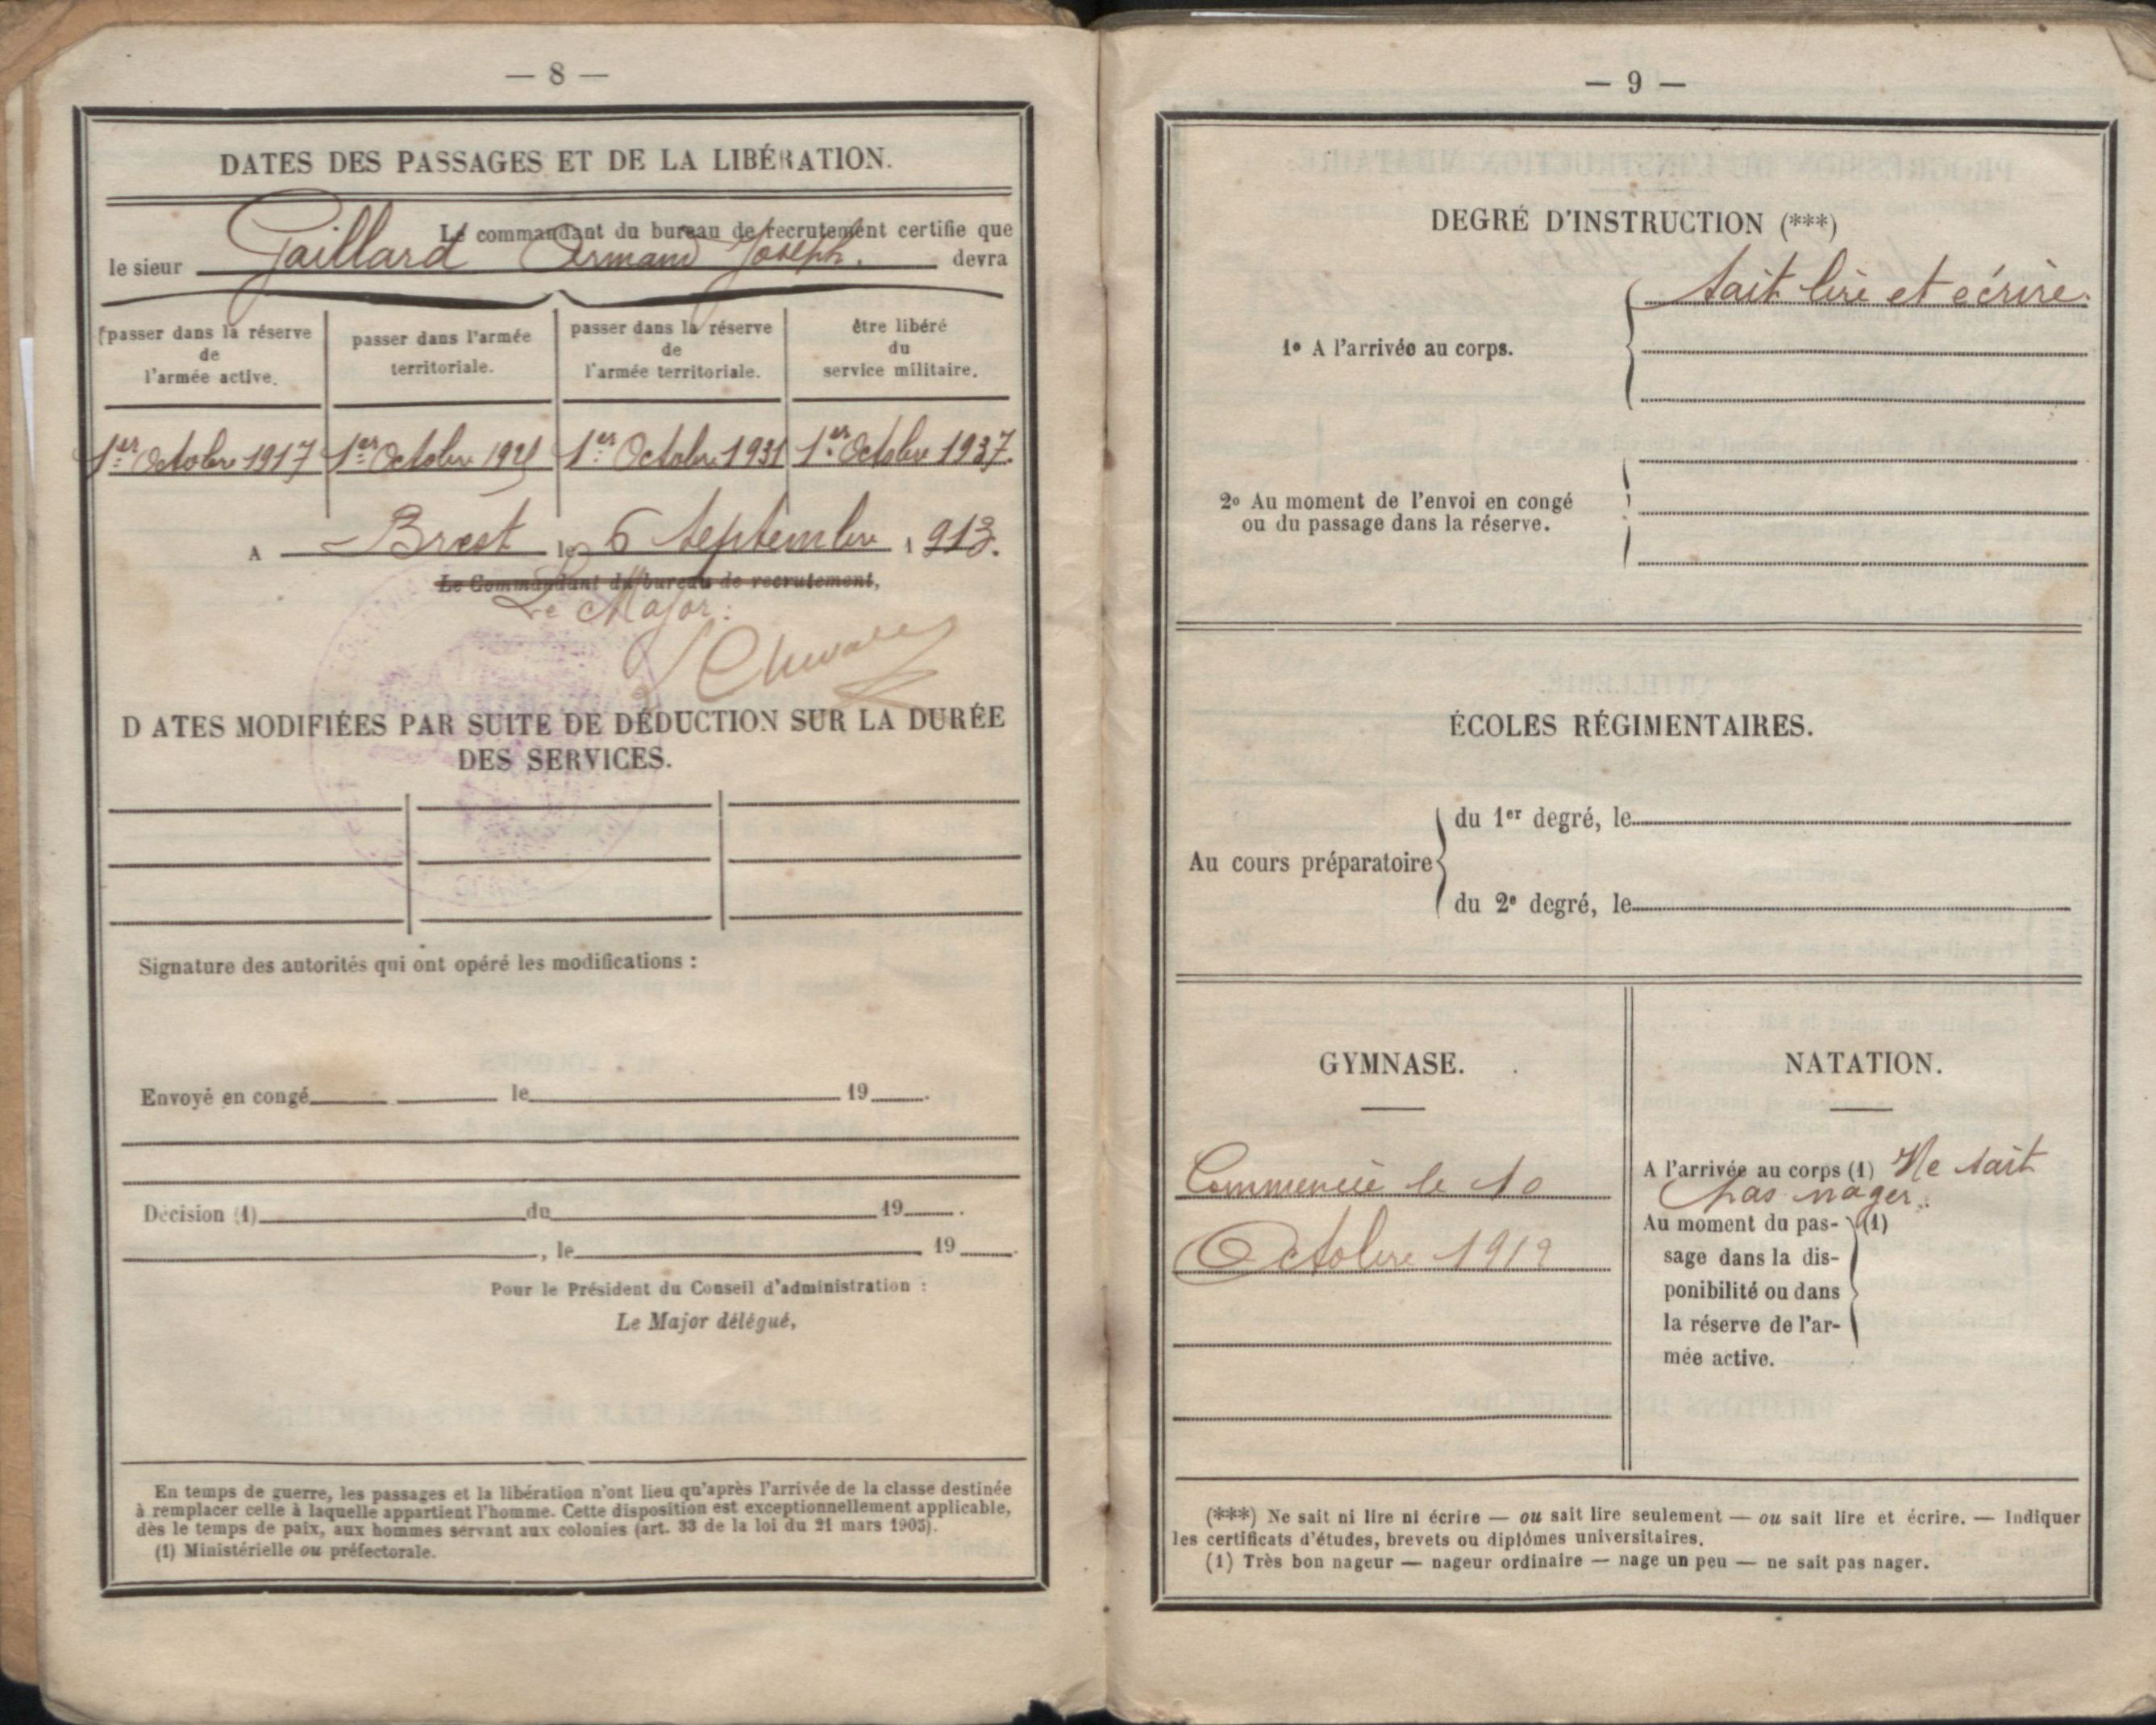 — 8 —
DATES DES PASSAGES ET DE LA LIBÉRATION.
Le commandant du bureau de recrutement certifie que
le sieur Gaillard Armand Joseph. devra
passer dans la réserve
de
l'armée active.
passer dans l'armée
territoriale.
passer dans la réserve
de
l'armée territoriale.
être libéré
du
service militaire.
1er Octobre 1917 1er Octobre 1921 1er Octobre 1931 1er Octobre 1937.
A Brest le 6 Septembre 1913.
Le Commandant du bureau de recrutement,
Le Major:
D ATES MODIFIÉES PAR SUITE DE DÉDUCTION SUR LA DURÉE
DES SERVICES.
Signature des autorités qui ont opéré les modifications :
Envoyé en congé le 19 .
Décision (1) du 19 .
, le 19 .
Pour le Président du Conseil d'administration :
Le Major délégué,
En temps de guerre, les passages et la libération n'ont lieu qu'après l'arrivée de la classe destinée
à remplacer celle à laquelle appartient l'homme. Cette disposition est exceptionnellement applicable,
dès le temps de paix, aux hommes servant aux colonies (art. 33 de la loi du 21 mars 1905).
(1) Ministérielle ou préfectorale.
— 9 —
DEGRÉ D'INSTRUCTION (***)
1o A l'arrivée au corps.
Sait lire et écrire.
2o Au moment de l'envoi en congé
ou du passage dans la réserve.
ÉCOLES RÉGIMENTAIRES.
Au cours préparatoire
du 1er degré, le
du 2e degré, le
GYMNASE.
Commencé le 10
Octobre 1912
NATATION.
A l'arrivée au corps (1) Ne sait
pas nager.
Au moment du pas- (1)
sage dans la dis-
ponibilité ou dans
la réserve de l'ar-
mée active.
(***) Ne sait ni lire ni écrire — ou sait lire seulement — ou sait lire et écrire. — Indiquer
les certificats d'études, brevets ou diplômes universitaires.
(1) Très bon nageur — nageur ordinaire — nage un peu — ne sait pas nager.